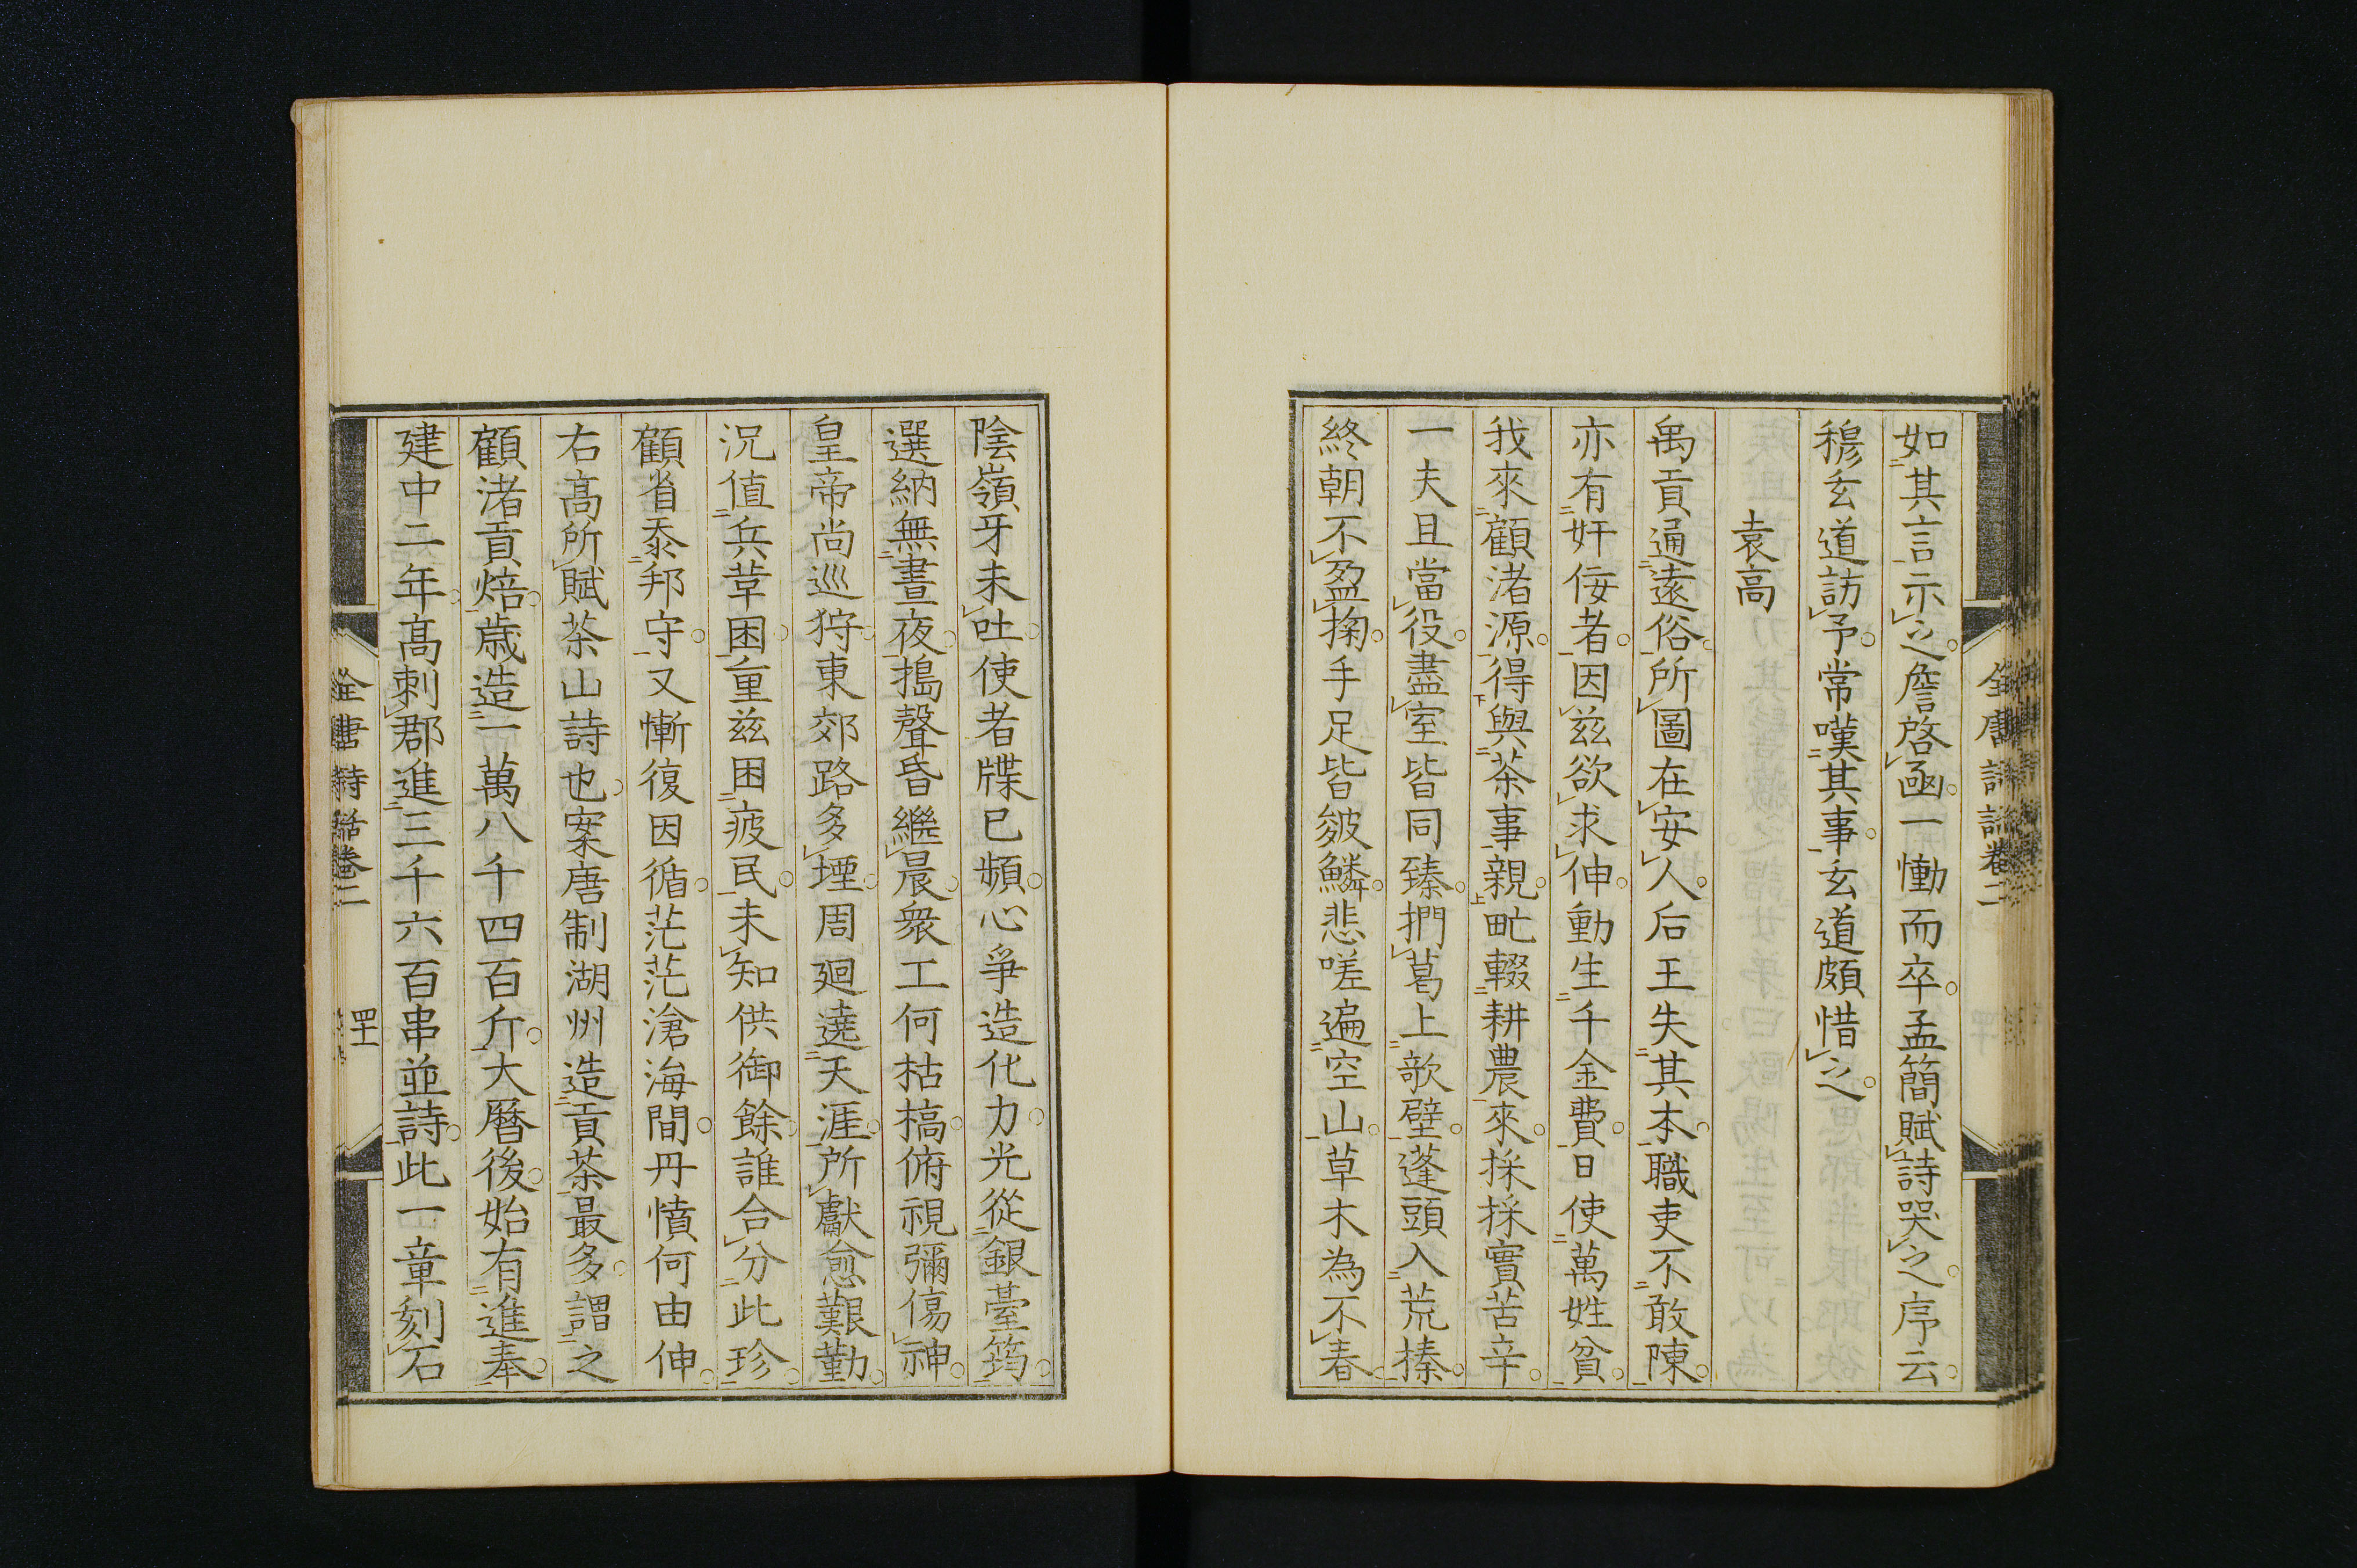 如其言示之詹啓凾一慟而卒孟簡賦詩哭之序云
穆玄道訪予常嘆其事玄道頗惜之
袁高
禹貢通遠俗所圖在安人后王失其本職吏不敢陳
亦有奸佞者因兹欲求伸動生千金費日使萬姓貧
我來顧渚源得與茶事親甿輟耕農來採採實苦辛
一夫且當役盡室皆同臻捫葛上欹壁蓬頭入荒榛
終朝不盈掬手足皆皴鱗悲嗟遍空山草木為不春
陰嶺牙未吐使者牒已頻心爭造化力光從銀臺筠
選納無晝夜搗聲昏繼晨衆工何枯槁俯視彌傷神
皇帝尚巡狩東郊路多堙周廻遶天涯所獻愈艱勤
況值兵革困重兹困疲民未知供御餘誰合分此珍
顧省忝邦守又慚復因循茫茫滄海間丹憤何由伸
右高所賦茶山詩也案唐制湖州造貢茶最多謂之
顧渚貢焙歲造一萬八千四百斤大曆後始有進奉
建中二年高刺郡進三千六百串並詩此一章刻石
全唐詩話卷二
四十一